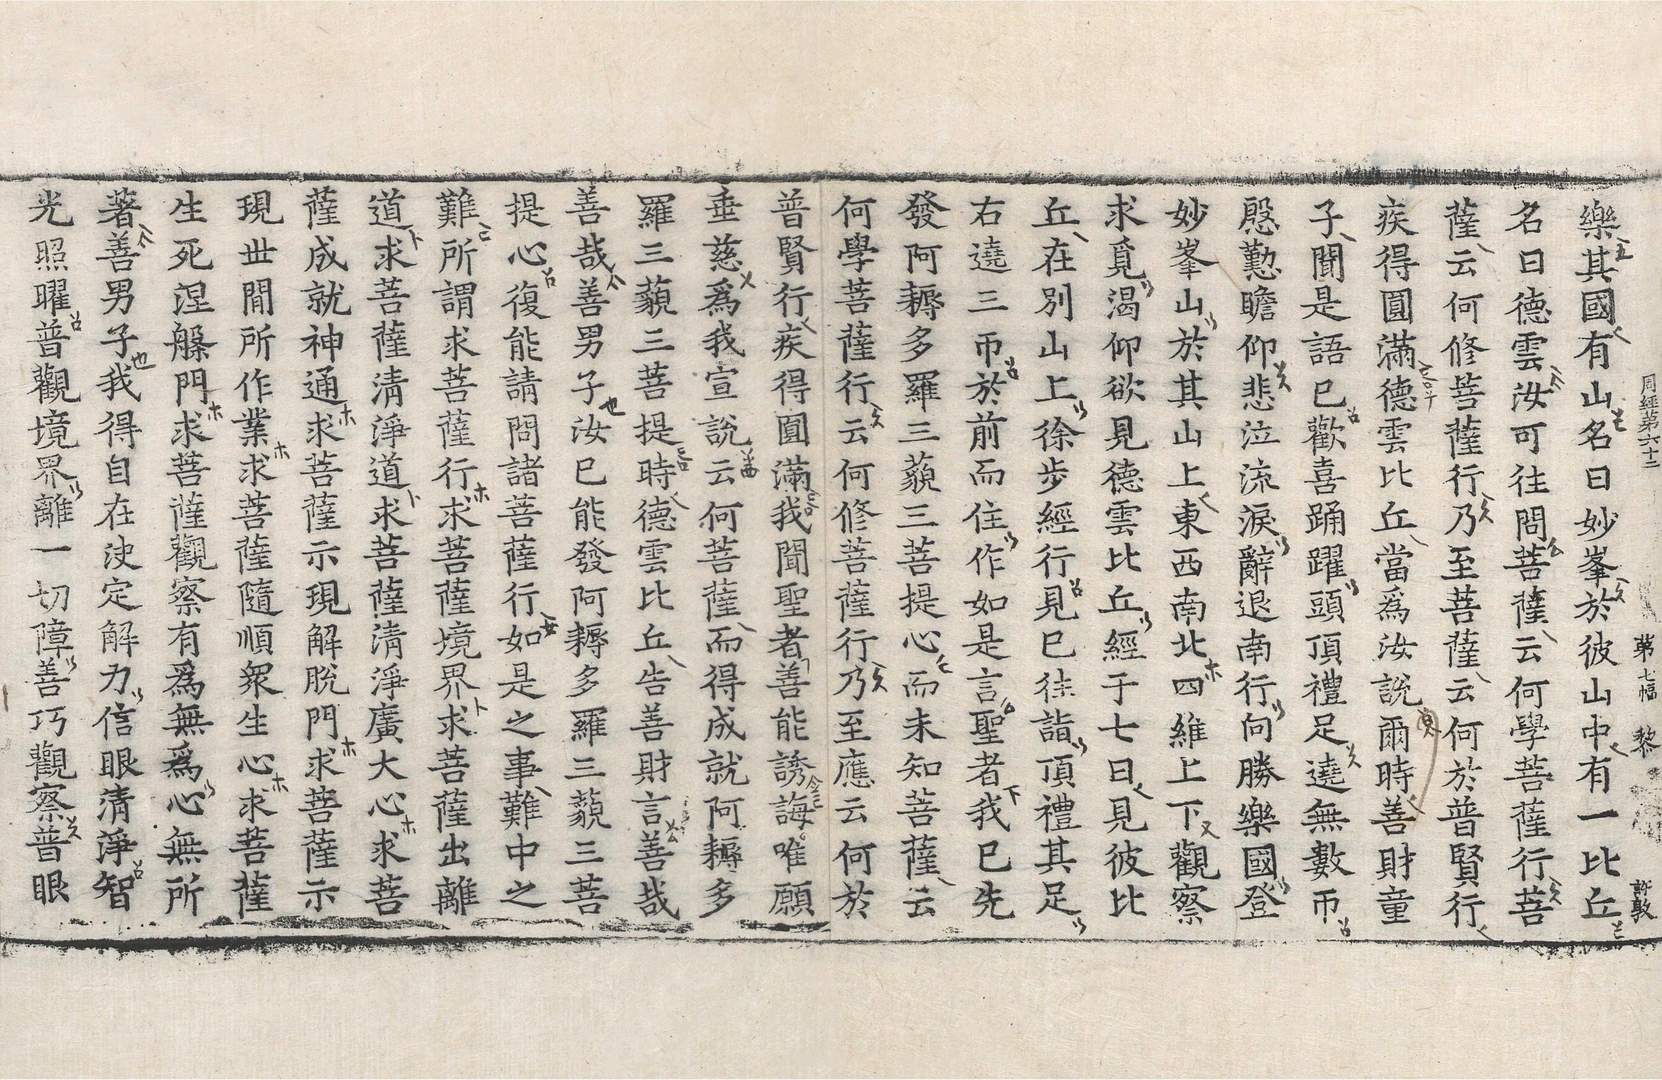 周經第六十二　第七幅　黎　許敦
樂其國有山名曰妙峯於彼山中有一比丘
名曰德雲汝可往問菩薩云何學菩薩行菩
薩云何修菩薩行乃至菩薩云何於普賢行
疾得圓滿德雲比丘當爲汝說爾時善財童
子聞是語已歡喜踊躍頭頂禮足遶無數帀
慇懃瞻仰悲泣流淚辭退南行向勝樂國登
妙峯山於其山上東西南北四維上下觀察
求覓渴仰欲見德雲比丘經于七日見彼比
丘在別山上徐步經行見已往詣頂禮其足
右遶三帀於前而住作如是言聖者我已先
發阿耨多羅三藐三菩提心而未知菩薩云
何學菩薩行云何修菩薩行乃至應云何於
普賢行疾得圓滿我聞聖者善能誘誨唯願
垂慈爲我宣說云何菩薩而得成就阿耨多
羅三藐三菩提時德雲比丘告善財言善哉
善哉善男子汝已能發阿耨多羅三藐三菩
提心復能請問諸菩薩行如是之事難中之
難所謂求菩薩行求菩薩境界求菩薩出離
道求菩薩清淨道求菩薩清淨廣大心求菩
薩成就神通求菩薩示現解脫門求菩薩示
現世閒所作業求菩薩隨順眾生心求菩薩
生死涅槃門求菩薩觀察有爲無爲心無所
著善男子我得自在決定解力信眼清淨智
光照曜普觀境界離一切障善巧觀察普眼